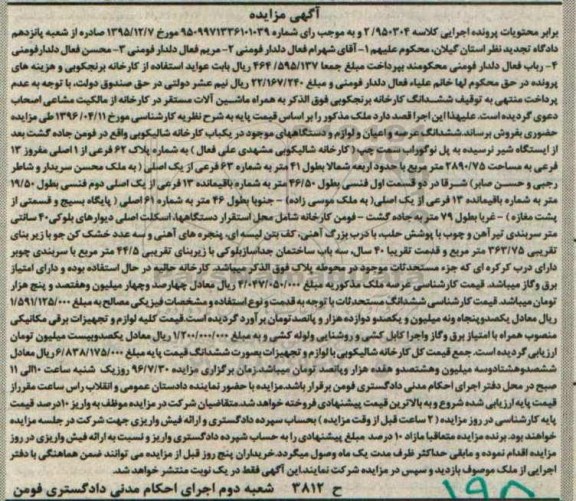 آگهی مزایده
برابر محتویات پرونده اجرایی کلاسه ۲/۹۵۰۳۰۴ و به موجب رای شماره ۹۵۰۹۹۷۱۳۳۶۱۰۱۰۳۹ مورخ ۱۳۹۵/۱۲/۷ صادره از شعبه پانزدهم
دادگاه تجدید نظر استان گیلان، محکوم علیهم ۱- آقای شهرام فعال دلدار فومنی ۲- مریم فعال دلدار فومنی ۳- محسن فعال دلدارفومنی
۴- رباب فعال دلدار فومنی محکومند بپرداخت مبلغ جمعا ۴۶۴/۵۹۵/۱۳۷ ریال بابت عواید استفاده از کارخانه برنجکوبی و هزینه های
پرونده در حق محکوم لها خانم علیاء فعال دلدار فومنی و مبلغ ۲۲/۱۶۷/۲۴۰ ریال نیم عشر دولتی در حق صندوق دولت، با توجه به عدم
پرداخت منتهی به توقیف ششدانگ کارخانه برنجکوبی فوق الذکر به همراه ماشین آلات مستقر در کارخانه از مالکیت مشاعی اصحاب
دعوی گردیده است. علیهذا این اجرا قصد دارد ملک مذکور را بر اساس قیمت پایه به شرح نظریه کارشناسی مورخ ۱۳۹۶/۰۴/۱۱ طی مزایده
حضوری بفروش برساند.ششدانگ عرصه و اعیان و لوازم و دستگاههای موجود در یکباب کارخانه شالیکوبی واقع در فومن جاده گشت بعد
از ایستگاه شیر نرسیده به پل نوگوراب سمت چپ (کارخانه شالیکوبی مشهدی علی فعال) به شماره پلاک ۶۲ فرعی از ۱ اصلی مفروز ۱۳
فرعی به مساحت ۲۸۹۰/۷۵ متر مربع با حدود اربعه شمالا بطول ۴۱ متر به شماره ۶۳ فرعی از یک اصلی (به ملک محسن سریدار و شاطر
رجبی و حسن صابر) شرقا در دو قسمت اول فنسی بطول ۴۶/۵۰ متر به شماره باقیمانده ۱۳ فرعی از یک اصلی دوم فنسی بطول ۱۹/۵۰
متر به شماره باقیمانده ۱۳ فرعی از یک اصلی( به ملک موسی زاده) - جنوبا بطول ۴۶ متر به شماره ۶۱ اصلی ( پایگاه بسیج و قسمتی از
پشت مغازه) - غربا بطول ۷۹ متر به جاده گشت - فومن کارخانه شامل محل استقرار دستگاهها، اسکلت اصلی دیوارهای بلوکی۴۰ سانتی
متر سربندی تیر آهن و چوب با پوشش حلب، با درب بزرگ آهنی، کف بتن لیسه ای، پنجره های آهنی و سه عدد خشک کن جو با زیر بنای
تقریبی ۳۶۳/۷۵ متر مربع و قدمت تقریبا ۴۰ سال، سه باب ساختمان جداسازبلوکی با زیربنای تقریبی ۴۴/۵ متر مربع با سربندی چوبر
دارای درب کرکره ای که جزء مستحدثات موجود در محوطه پلاک فوق الذکر میباشد. کارخانه حالیه در حال استفاده بوده و دارای امتیاز
برق وگاز میباشد. قیمت کارشناسی عرصه ملک مذکوربه مبلغ ۴/۰۴۷/۰۵۰/۰۰۰ ریال معادل چهارصد وچهار میلیون وهفتصد و پنج هزار
تومان میباشد. قیمت کارشناسی ششدانگ مستحدثات با توجه به قدمت و نوع استفاده و مشخصات فیزیکی مصالح به مبلغ ۱/۵۹۱/۱۲۵/۰۰۰
ریال معادل یکصدوپنجاه ونه میلیون و یکصدو دوازده هزار و پانصد تومان برآورد گردیده است.قیمت کلیه لوازم و تجهیزات برقی مکانیکی
منصوب همراه با امتیاز برق وگاز واجرا کابل کشی و روشنایی ولوله کشی و به مبلغ ۱/۲۰۰/۰۰۰/۰۰۰ ریال معادل یکصدوبیست میلیون تومان
ارزیابی گردیده است. جمع قیمت کل کارخانه شالیکوبی با لوازم و تجهیزات بصورت ششدانگ قیمت پایه مبلغ ۶/۸۳۸/۱۷۵/۰۰۰ ریال معادل
ششصدوهشتادوسه میلیون وهشتصدو هفده هزار وپانصد تومان میباشد.زمان برگزاری مزایده ۹۶/۷/۳۰ روزیک شنبه ساعت ۱۰الی ۱۱
صبح در محل دفتر اجرای احکام مدنی دادگستری فومن برقرار باشد.مزایده با حضور نماینده دادستان عمومی و انقلاب راس ساعت مقرر از
قیمت پایه ارزیابی شده شروع و به بالاترین قیمت پیشنهادی فروخته خواهد شد.متقاضیان شرکت در مزایده موظف به واریز ۱۰درصد قیمت
پایه کارشناسی در روز مزایده ( ۲ ساعت قبل از وقت مزایده ) بحساب سپرده دادگستری و ارائه فیش واریزی جهت شرکت در جلسه مزایده
خواهند بود. برنده مزایده متعاقبا مازاد ۱۰ درصد مبلغ پیشنهادی را به حساب سپرده دادگستری واریز و نسبت به ارائه فیش واریزی در روز
مزایده اقدام نموده و مابقی حداکثر ظرف مدت یک ماه وصول میگردد.خریداران پنج روز قبل از مزایده می توانند ضمن هماهنگی با دفتر
اجرایی از ملک موصوف بازدید و سپس در مزایده شرکت نمایند.این آگهی فقط در یک نوبت منتشر خواهد شد.
ح ۳۸۱۲ شعبه دوم اجرای احکام مدنی دادگستری فومن
۱۹۸